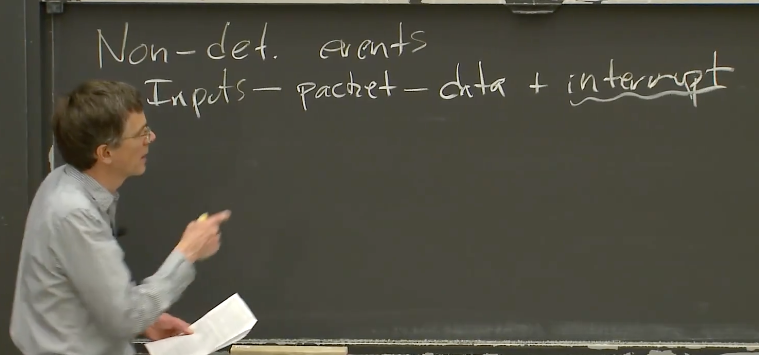 Non-det. events
Inputs - packet - data + interrupt